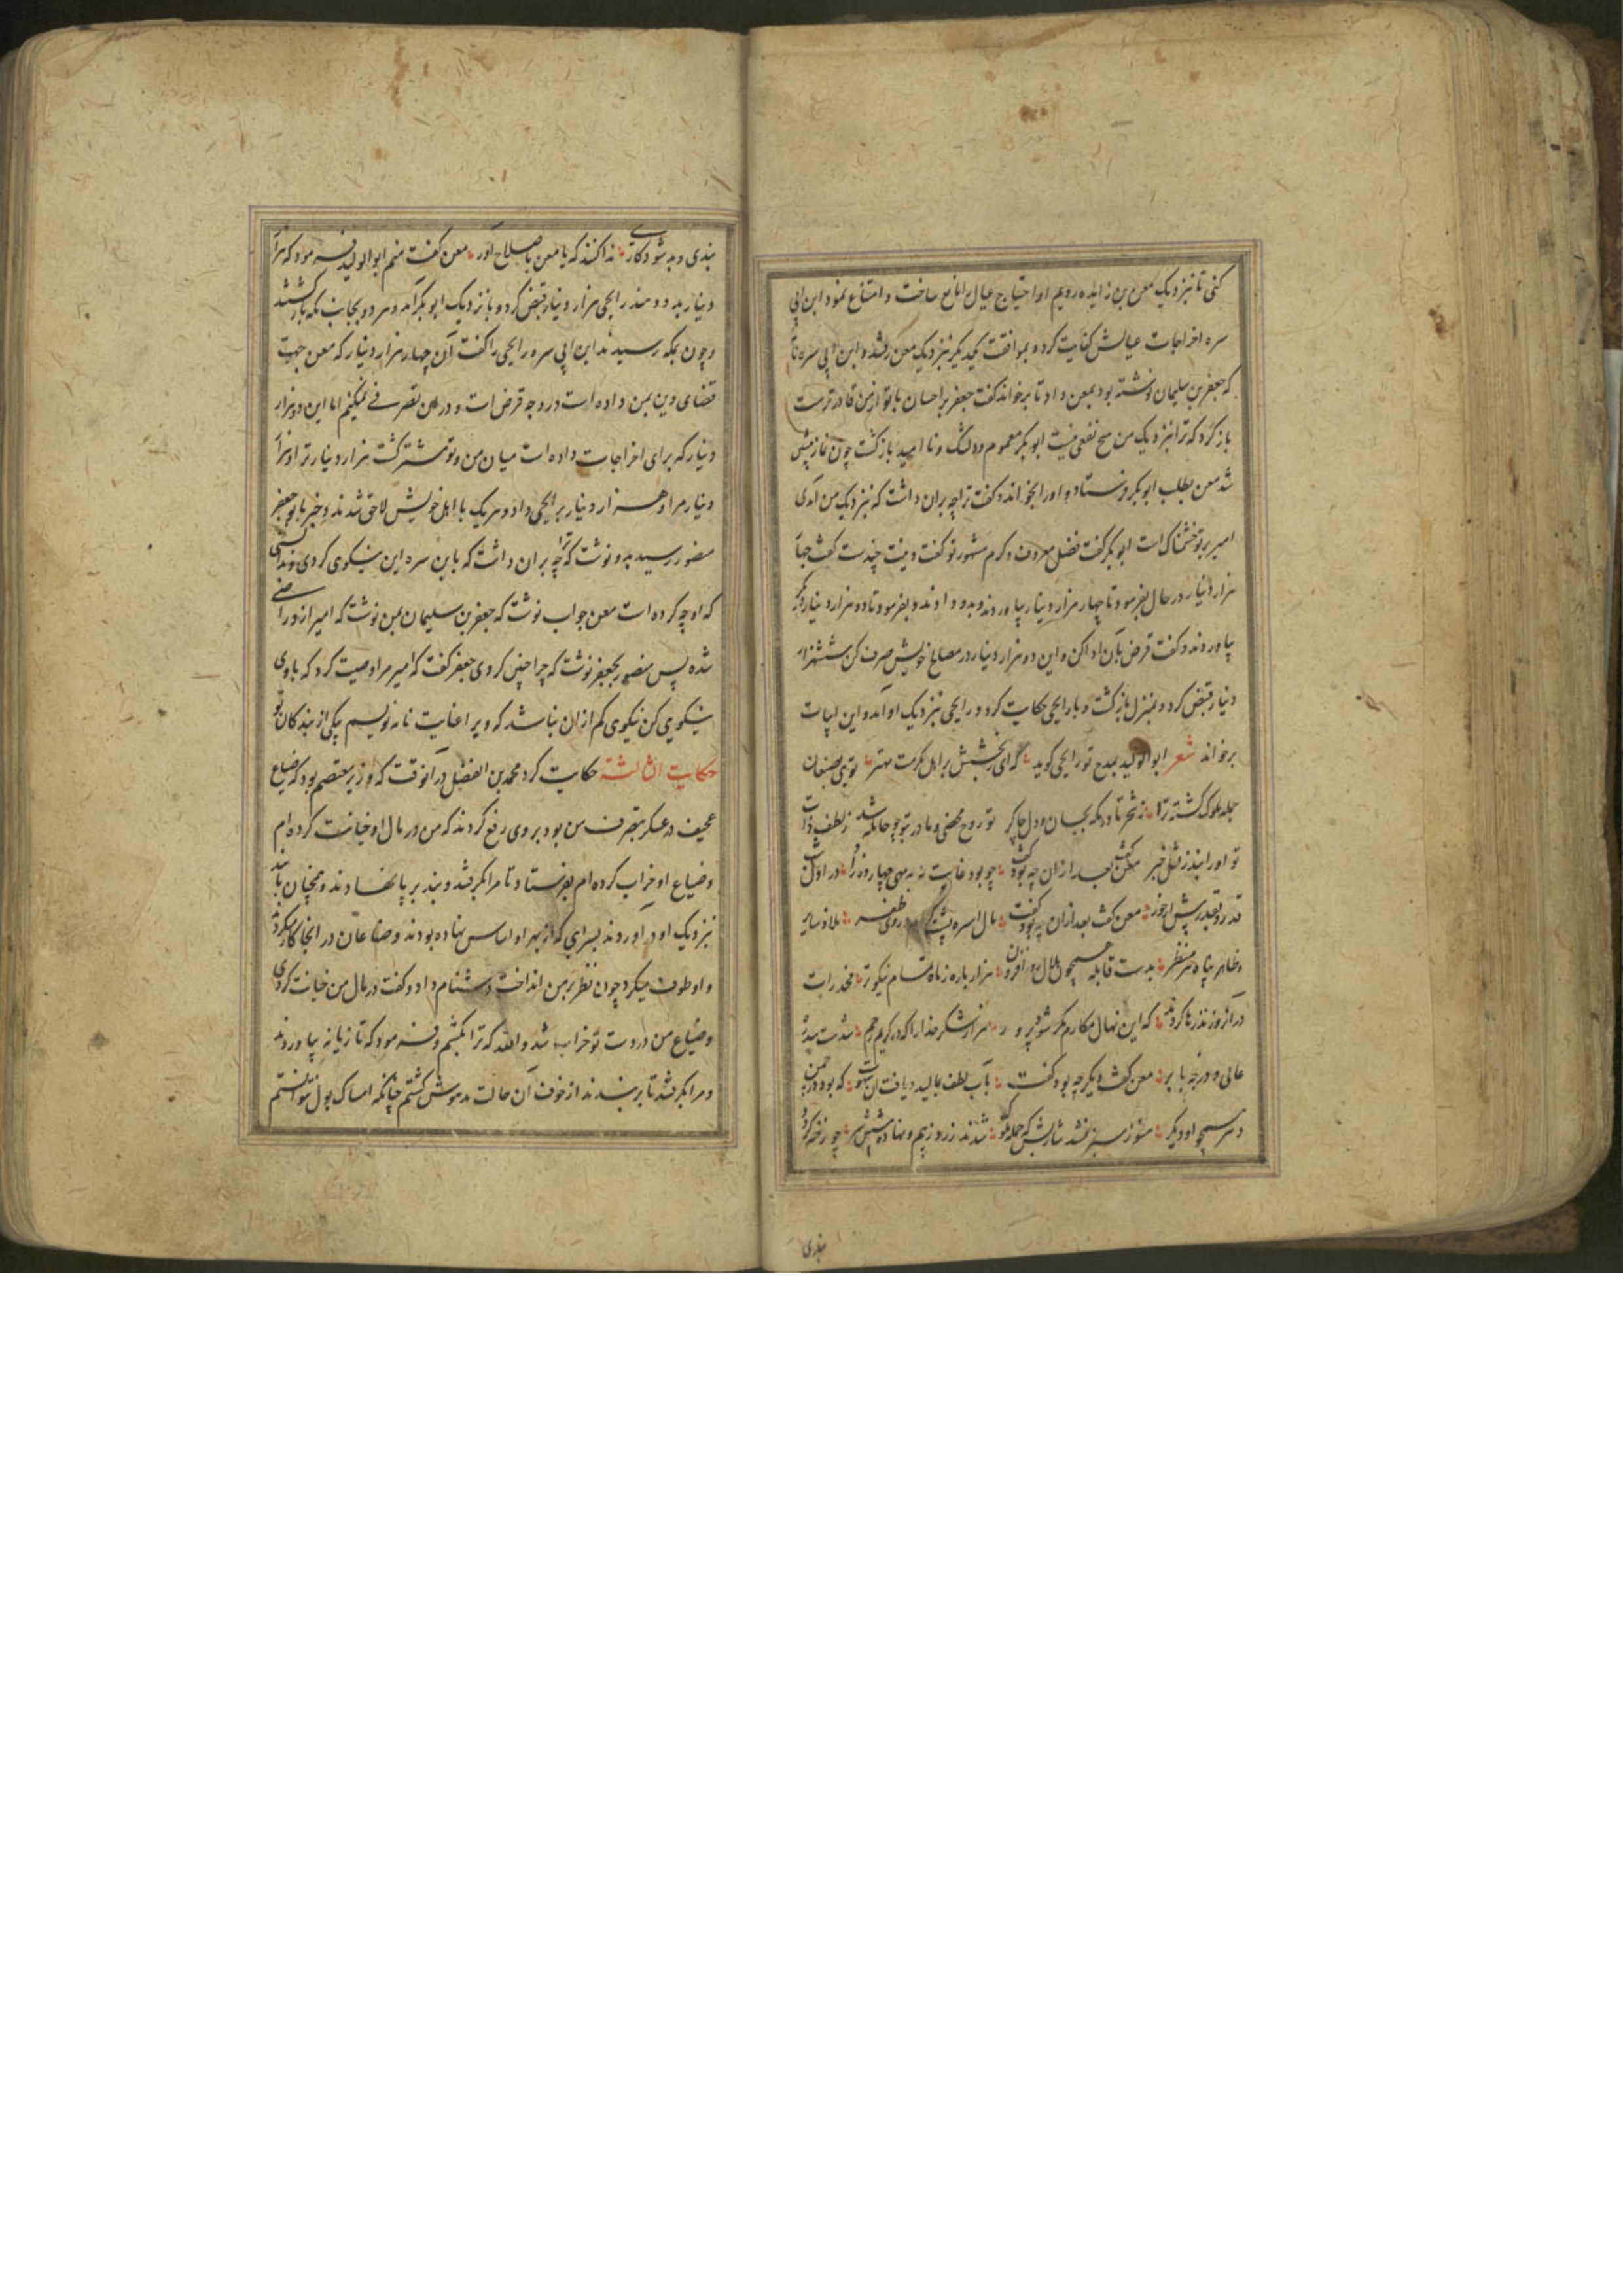 کنی تا نزدیک معن بن زایده رویم او احتیاج عیال را مانع ساخت و امتناع نمود ابن ابی
سره اخراجات عیالش کفایت کرد و بموافقت یکدیگر نزدیک معن رفتند و ابن ابی سره
که جعفر بن سلیمان نوشته بود بمعن داد تا برخواند گفت جعفر بر احسان با تو از من قادرترست
باز گرد که ترا نزدیک من هیچ نفعی نیست ابوبکر مغموم و دلتنگ و ناامید بازگشت چون نماز پیشین
شد معن بطلب ابوبکر فرستاد و او را بخواند و گفت ترا چه بران داشت که نزدیک من آمدی
امیر بر تو خشمناک است ابوبکر گفت فضل معروف و کرم مشهور تو گفت دینت چندست گفت چهار
هزار دینار در حال بفرمود تا چهار هزار دینار بیاوردند و بدو دادند و بفرمود تا دو هزار دینار دیگر
بیاوردند و گفت قرض بآن ادا کن و این دو هزار دینار در مصالح خویش صرف کن شش هزار
دینار قبض کرد و بمنزل بازگشت و با رابحی حکایت کرد و رابحی نزدیک او آمد و این ابیات
برخواند شعر ابوالولید بمدح تو رابحی گوید که ای بخشش بر اهل مکرمت مهتر تویی
جمله ملوک گشته ترا بجان و دل چاکر تو روح محضی و مادر بتو چو حامله شد ز لطف ذات
تو او را نبد ز ثقل خبر معن گفت بعد ازان چه بود گفت چو بود غایت نه مهی چهارده روز در اول
معن گفت بعد ازان چه بود گفت
و ظاهر پناه هر مضطر بدست قابله همچون هلال روز افزون هزار باره ز ماه تمام نیکوتر مخدرات
در آن روز نذرها کردند که این نهال مکارم مگر شود پر و بر هزار شکر خدا را که در کریم رحیم شدست
عالی و درجه بابر معن گفت دیگر چه بود گفت بآب لطف بمالید دایه که بود در چمن
و سر همچو او دیگر هنوز سبز نشد شاربش که جمله ملوک شدند زر و زیم و نهاده پیشش سر
بندی
بندی و به شود کارت ندا کنند که یا معن با صلاح آور معن گفت منم ابوالولید فرمود که هزار
دینار بدو دهند رابحی هزار دینار قبض کرد و باز نزدیک ابوبکر آمد و هر دو بجانب مکه بازگشتند
و چون بمکه رسیدند ابن ابی سره رابحی را گفت آن چهار هزار دینار که معن جهت
قضای دین بمن داده است در وجه قرض است و در آن تصرفی نمیکنم اما این دو هزار
دینار که برای اخراجات داده است میان من و تو مشترکست هزار دینار ترا و هزار
دینار مرا و هزار دینار بر رابحی داد و هر یک با اهل خویش لاحق شدند و خبر بابو جعفر
منصور رسید بدو نوشت که ترا چه بران داشت که با ابن سره این نیکوی کردی و ندانستی
که او چه کرده است معن جواب نوشت که جعفر بن سلیمان بمن نوشت که امیر از و راضی
شده پس منصور بجعفر نوشت که چرا چنین کردی جعفر گفت که امیر مرا وصیت کرد که با وی
نیکویی کن نیکوی کم ازان نباشد که ویرا عنایت نامه نویسم بیکی از بندکان تو
حکایت الثالثة حکایت کرد محمد بن الفضل در آنوقت که وزیر معتصم بود که ضیاع
عجیف در عسکر بتصرف من بود بروی رفع کردند که من در مال او خیانت کرده ام
و ضیاع او خراب کرده ام بفرستاد تا مرا بگرفتند و بند بر پا نهادند و همچنان با بند
نزدیک او در آوردند بسرای که از بهر او اساس نهاده بودند و صناعان در آنجا کار میکردند
و او طوف میکرد چون نظر بر من انداخت دشنام داد و گفت در مال من خیانت کردی
و ضیاع من در دست تو خراب شد والله که ترا بکشم و فرمود که تازیانه بیاوردند
و مرا بگرفتند تا بزنند از خوف آن حالت مدهوش گشتم چنانکه امساک بول نتوانستم